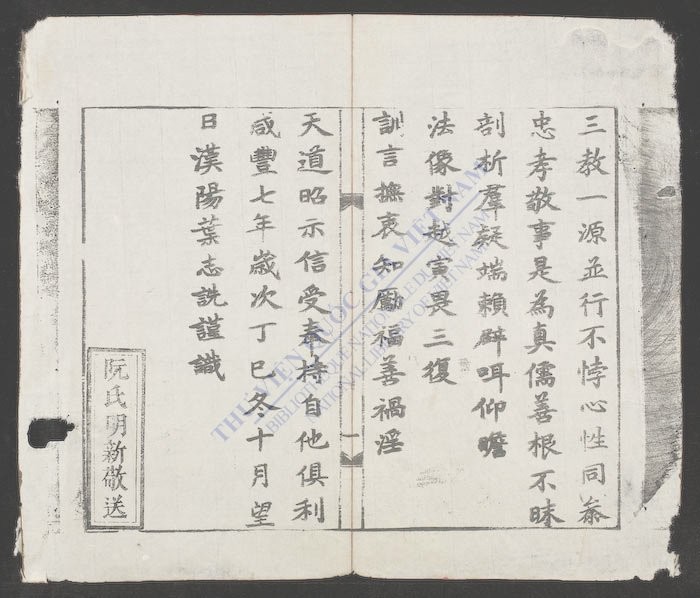 三教一源並行不悖心性同叅
忠孝敬事是為真儒善根不昧
剖析羣疑端賴辟咡仰瞻
法像對越寅畏三復
訓言撫衷知勵福善禍淫
天道昭示信受奉持自他俱利
咸豐七年歲次丁巳冬十月望
日漢陽葉志詵謹識
阮氏明新敬送
一
THƯ VIỆN QUỐC GIA VIỆT NAM
BIBLIOTHÈQUE NATIONALE DU VIỆT NAM
NATIONAL LIBRARY OF VIỆT NAM